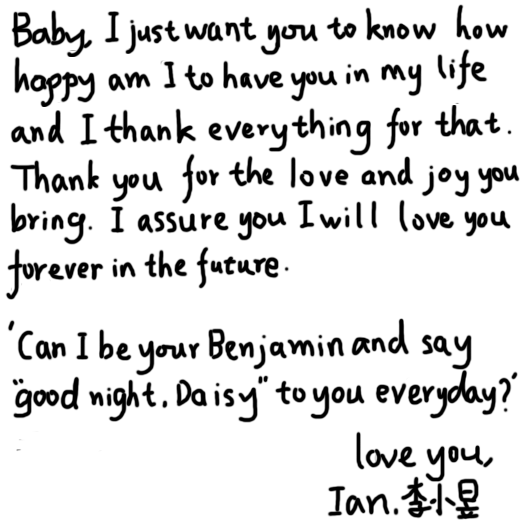 Baby, I just want you to know how
happy am I to have you in my life
and I thank everything for that.
Thank you for the love and joy you
bring. I assure you I will love you
forever in the future.
'Can I be your Benjamin and say
"good night, Daisy" to you everyday?'
love you,
Ian. 李小昱